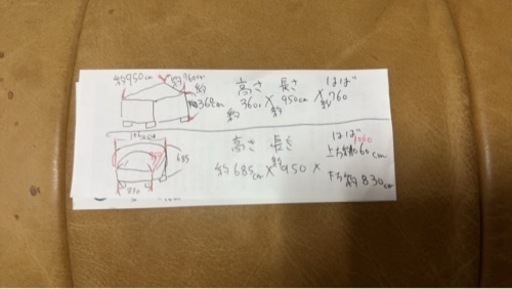 約950cm 約760cm
約
368cm
高さ 長さ はば
約360cm × 約950cm × 約760
高さ 長さ はば
1060
上方約1060cm
約685cm × 約950 ×
下方約830cm
685
830